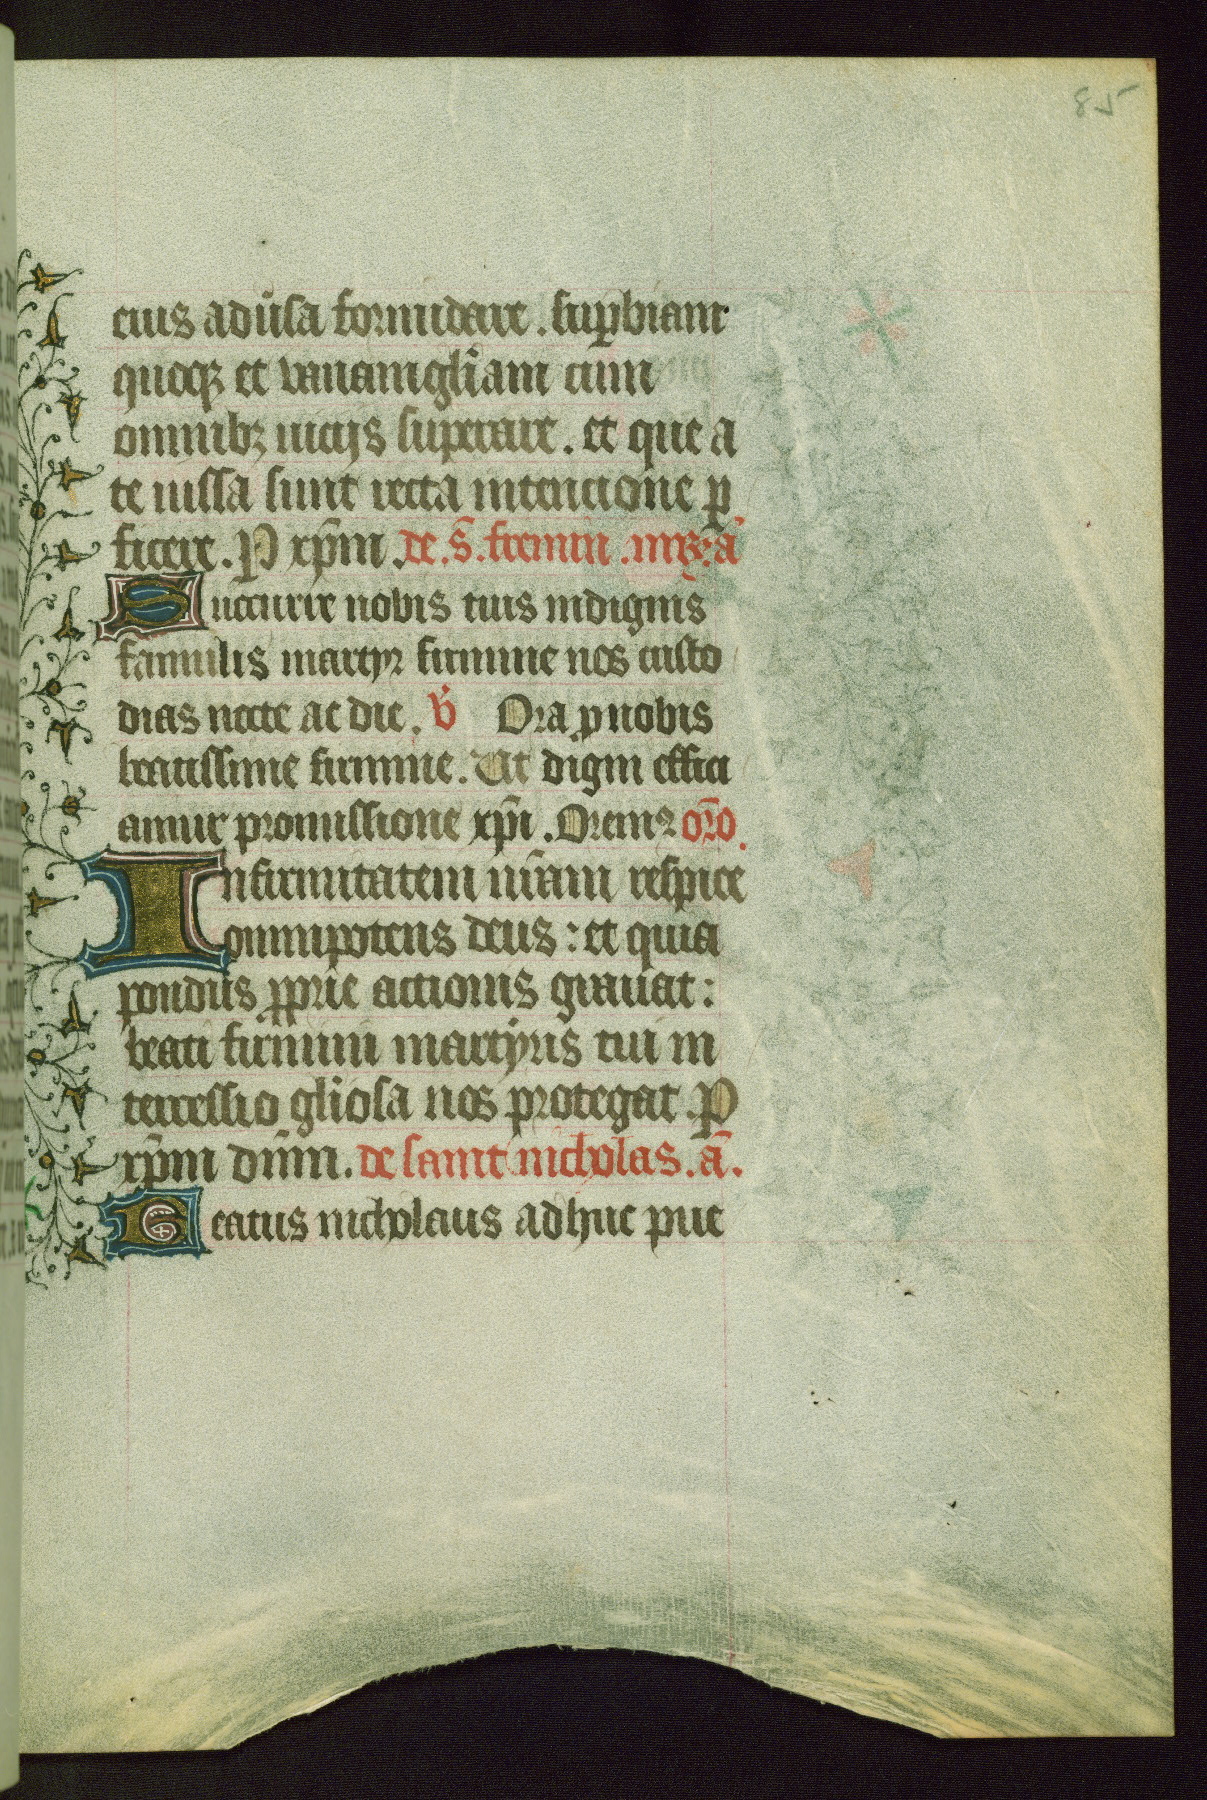 85
eius adũsa formidare. suꝑbiam
quoqꝫ et vanam gl̃iam cum
omnibꝫ uicijs superare. et que a
te iussa sunt recta intencione ꝑ
ficere. P xp̃m. de. s̃. fremin. .ã
Succurre nobis tuis indignis
famulis martyr firmine nos custo
dias nocte ac die. v̾ Ora ꝓ nobis
beatissime firmine. Ut digni effici
amur promissione xp̃i. Oremꝰ or̃o.
Infirmitatem nr̃am respice
omnipotens deus: et quia
pondus ꝓprie actionis grauat:
beati firmini martyris tui in
tercessio gl̃iosa nos protegat. P
xp̃m dñm. de saint nicholas. ã.
Beatus nicholaus adhuc pue